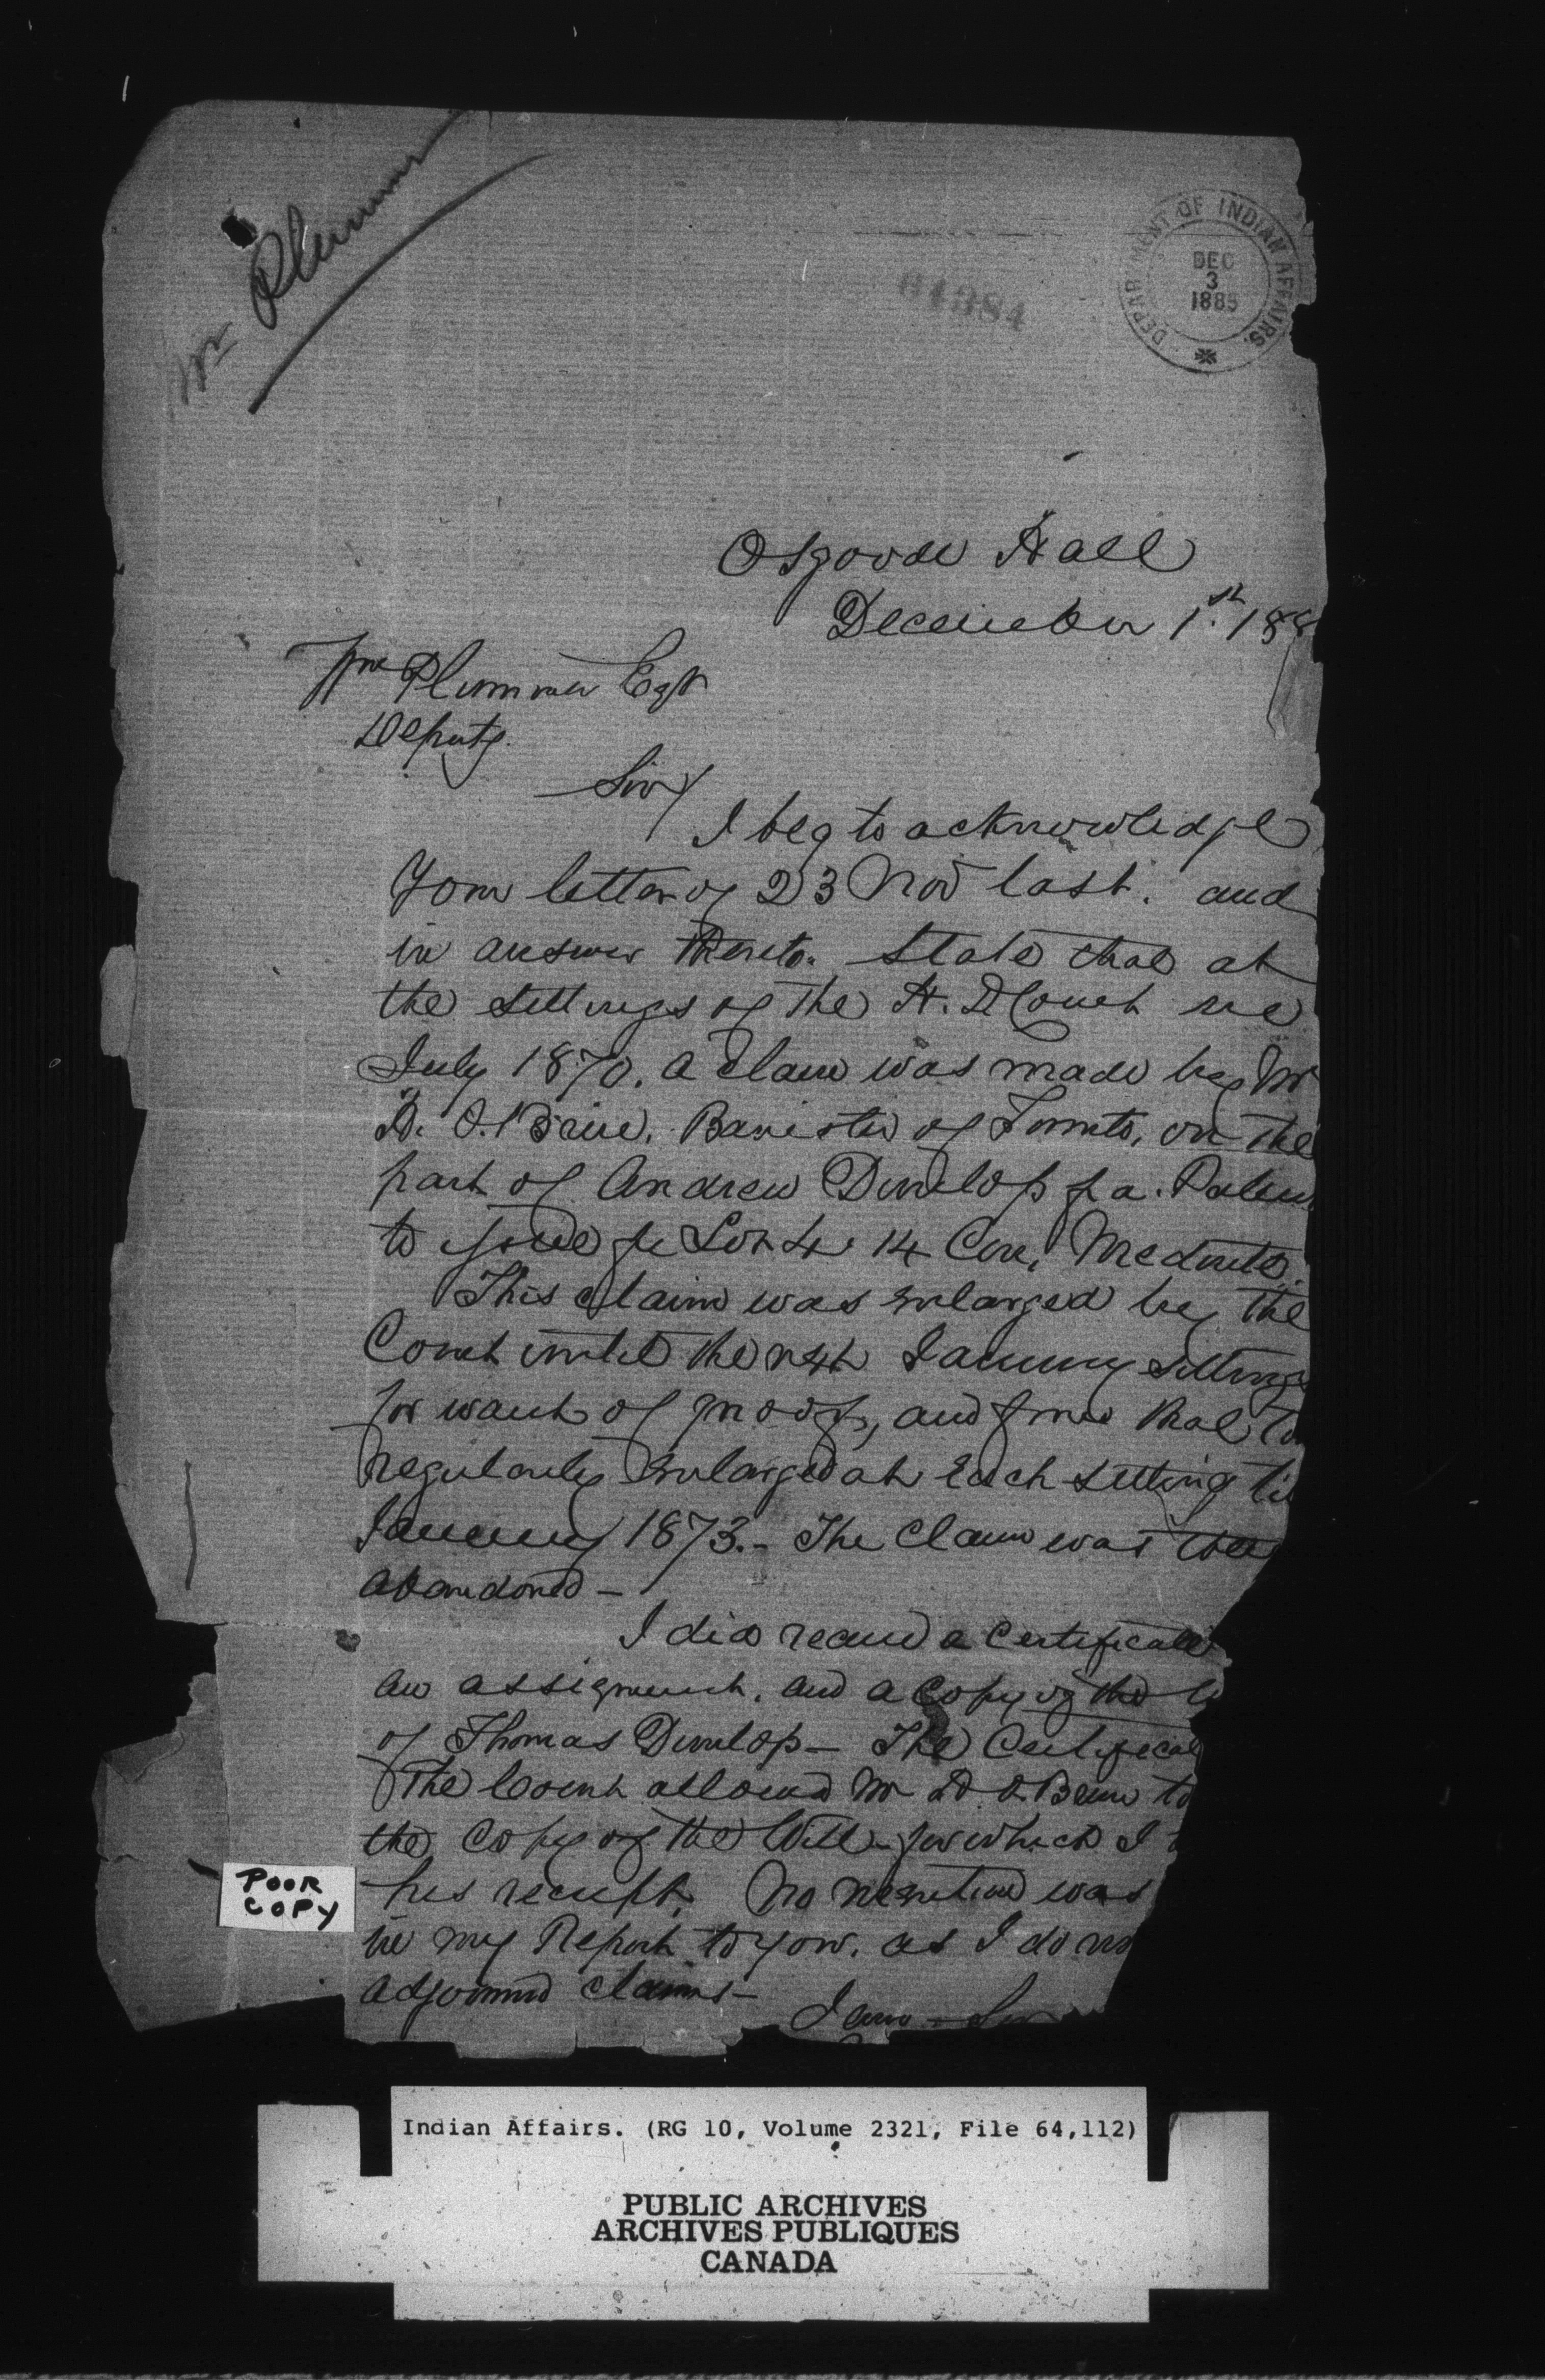 Mr Plummer
DEPARTMENT OF INDIAN AFFAIRS.
DEC
3
1885
64384
Osgoode Hall
December 1st. 188
Wm Plummer Esqr
Deputy.
Sir/
I beg to acknowledge
Your letter of 23 Nov last. and
in answer thereto. State that at
the Sittings of the H. D Court in
July 1870. a Claim was made by Mr
D. O.Brien. Barister of Toronto, on the
part of Andrew Dunlop for a. Paten
to issue for Lot 4. 14 Con, Medonte.
This claim was enlarged by the
Court until the next January Sitting
for want of proof, and from that to
regularly Enlarged at Each sitting til
January 1873.- The Claim was then
abandoned -
I did receive a Certificate
an assignment. and a Copy of the
of Thomas Dunlop - The Certificat
The Court allowed Mr D O Brien to
the Copy of the Will - for which I
his receipt. No mention was
in my Report to you. as I do no
adjourned claims -
I am - Sir
POOR
COPY
Indian Affairs. (RG 10, Volume 2321, File 64,112)
PUBLIC ARCHIVES
ARCHIVES PUBLIQUES
CANADA